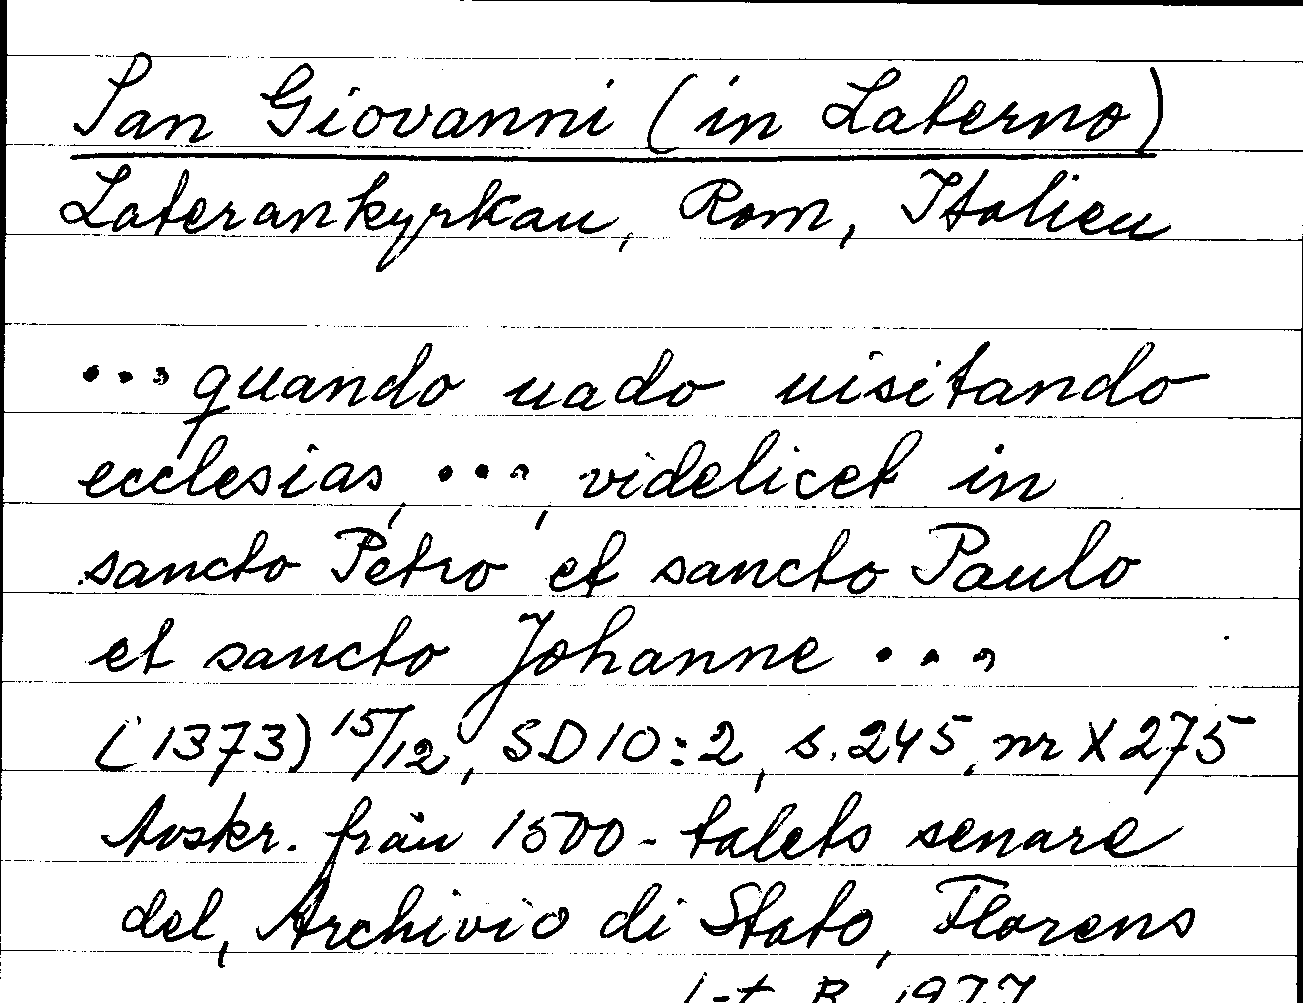 San Giovanni (in Laterno)
Laterankyrkan, Rom, Italien
... quando uado uisitando
ecclesias, ..., videlicet in
sancto Petro et sancto Paulo
et sancto Johanne ...
(1373) 15/12, SD 10:2, s. 245, nr X 275
Avskr. från 1500-talets senare
del, Archivio di Stato, Florens
R. 1977